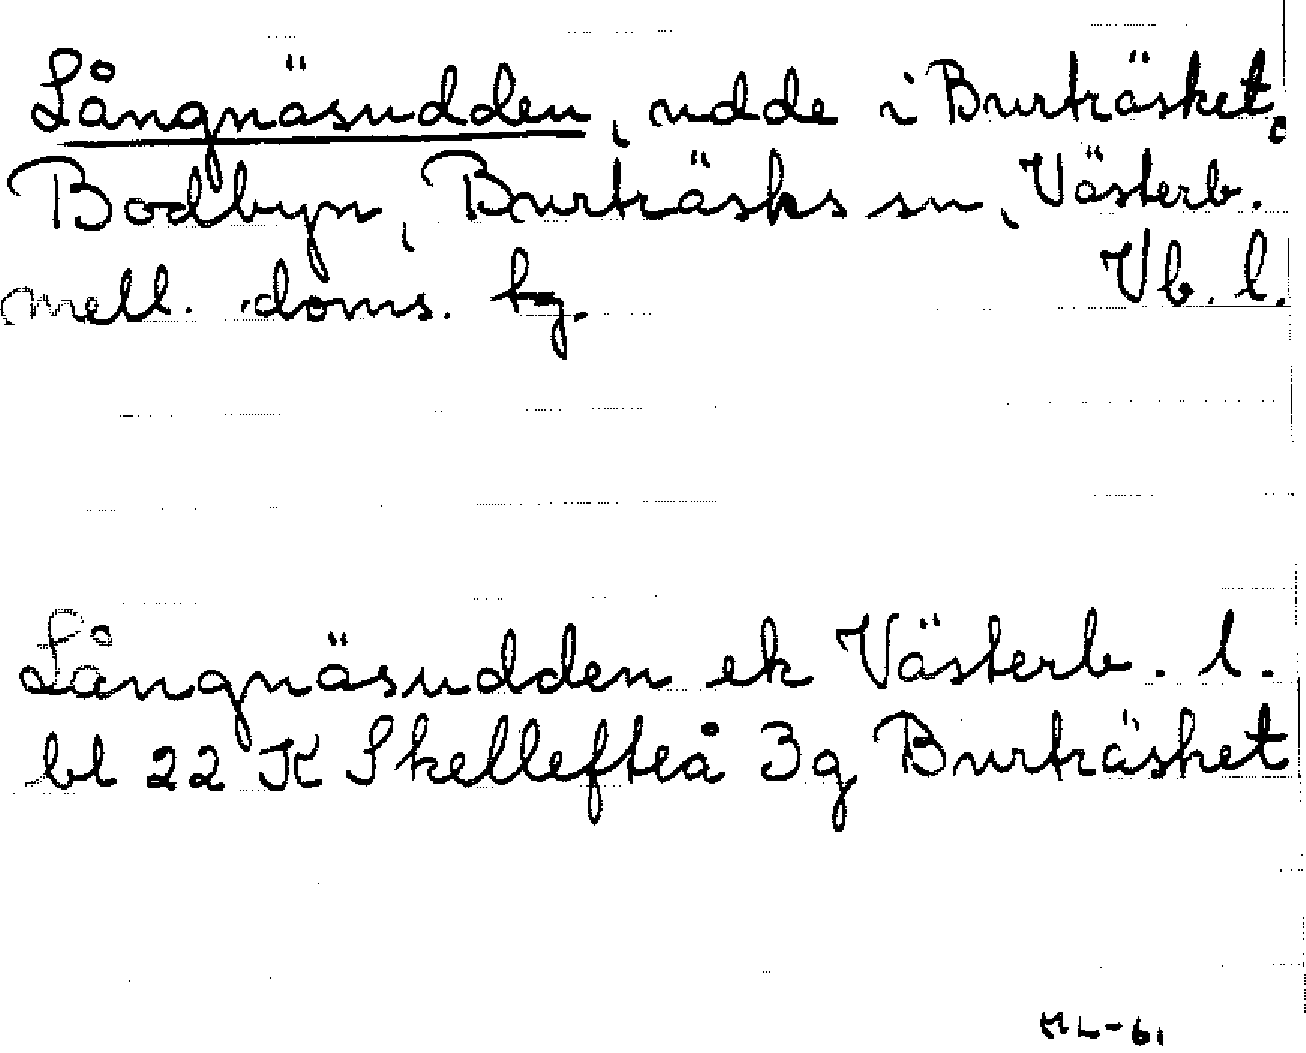 Långnäsudden, udde i Burträsket,
Bodbyn, Burträsks sn, Västerb.
mell. doms. tg. Vb. l.
Långnäsudden ek Västerb. l.
bl 22 K Skellefteå 3g Burträsket
ML-61